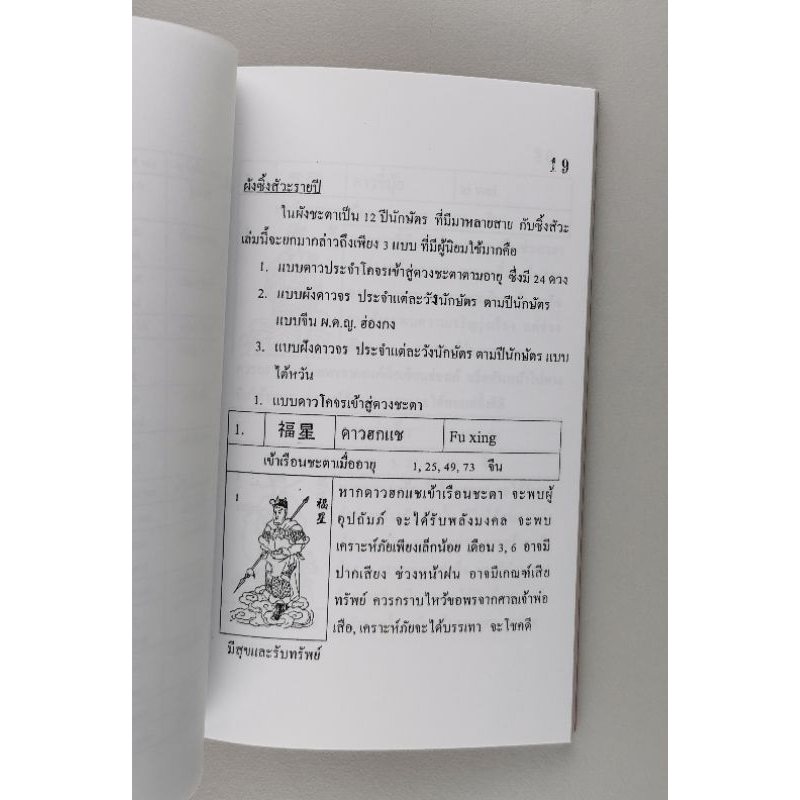 19
ผังซิ้งสัวะรายปี
ในผังชะตาเป็น 12 ปีนักษัตร ที่มีมาหลายสาย กับซิ้งสัวะ
เล่มนี้จะยกมากล่าวถึงเพียง 3 แบบ ที่มีผู้นิยมใช้มากคือ
1. แบบดาวประจำโคจรเข้าสู่ดวงชะตาตามอายุ ซึ่งมี 24 ดวง
2. แบบผังดาวจร ประจำแต่ละวังนักษัตร ตามปีนักษัตร
แบบจีน ผ.ด.ญ. ฮ่องกง
3. แบบผังดาวจร ประจำแต่ละวังนักษัตร ตามปีนักษัตร แบบ
ไต้หวัน
1. แบบดาวโคจรเข้าสู่ดวงชะตา
1. 福星 ดาวฮกแซ Fu xing
เข้าเรือนชะตาเมื่ออายุ 1, 25, 49, 73 จีน
1 福星
หากดาวฮกแซเข้าเรือนชะตา จะพบผู้
อุปถัมภ์ จะได้รับพลังมงคล จะพบ
เคราะห์ภัยเพียงเล็กน้อย เดือน 3, 6 อาจมี
ปากเสียง ช่วงหน้าฝน อาจมีเกณฑ์เสีย
ทรัพย์ ควรกราบไหว้ขอพรจากศาลเจ้าพ่อ
เสือ, เคราะห์ภัยจะได้บรรเทา จะโชคดี
มีสุขและรับทรัพย์